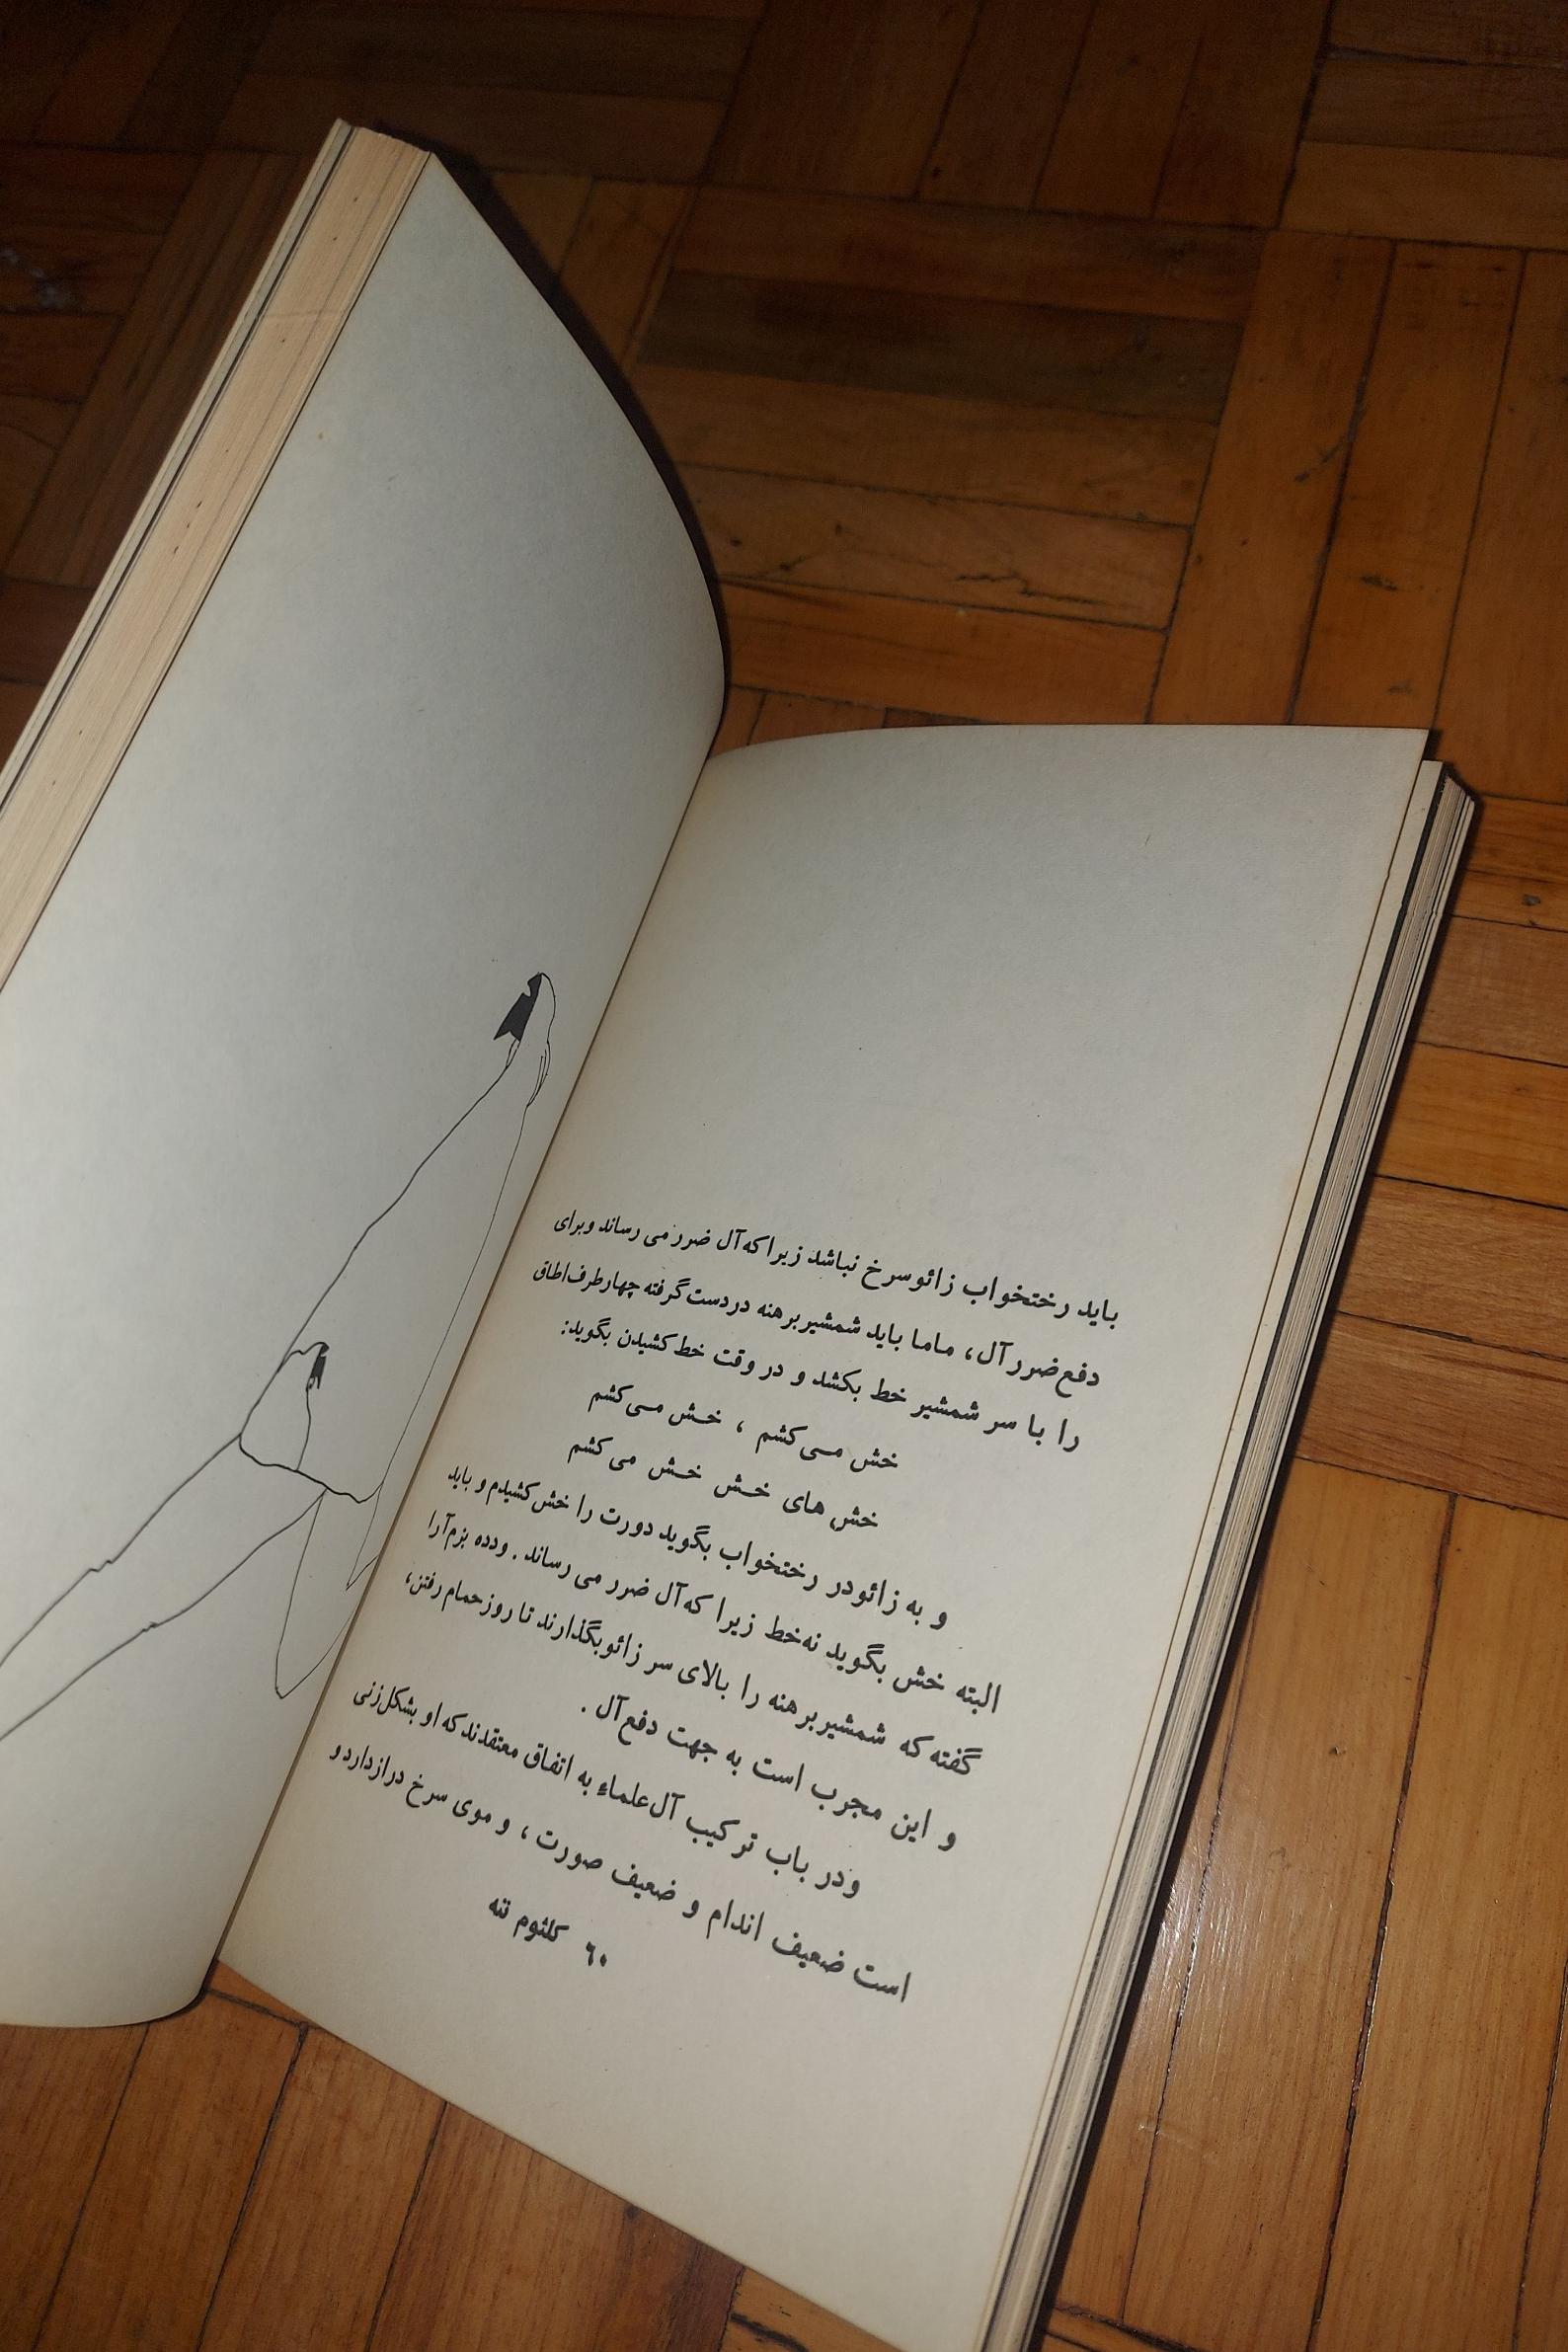 باید رختخواب زائو سرخ نباشد زیرا که آل ضرر می رساند و برای
دفع ضرر آل، ماما باید شمشیر برهنه در دست گرفته چهار طرف اطاق
را با سر شمشیر خط بکشد و در وقت خط کشیدن بگوید:
خش می کشم ، خش می کشم
خش های خش خش می کشم
و به زائو در رختخواب بگوید دورت را خش کشیدم و باید
البته خش بگوید نه خط زیرا که آل ضرر می رساند . و دده بزم آرا
گفته که شمشیر برهنه را بالای سر زائو بگذارند تا روز حمام رفتن،
و این مجرب است به جهت دفع آل .
و در باب ترکیب آل علماء به اتفاق معتقدند که او بشکل زنی
است ضعیف اندام و ضعیف صورت ، و موی سرخ دراز دارد و
۶۰ کلثوم ننه